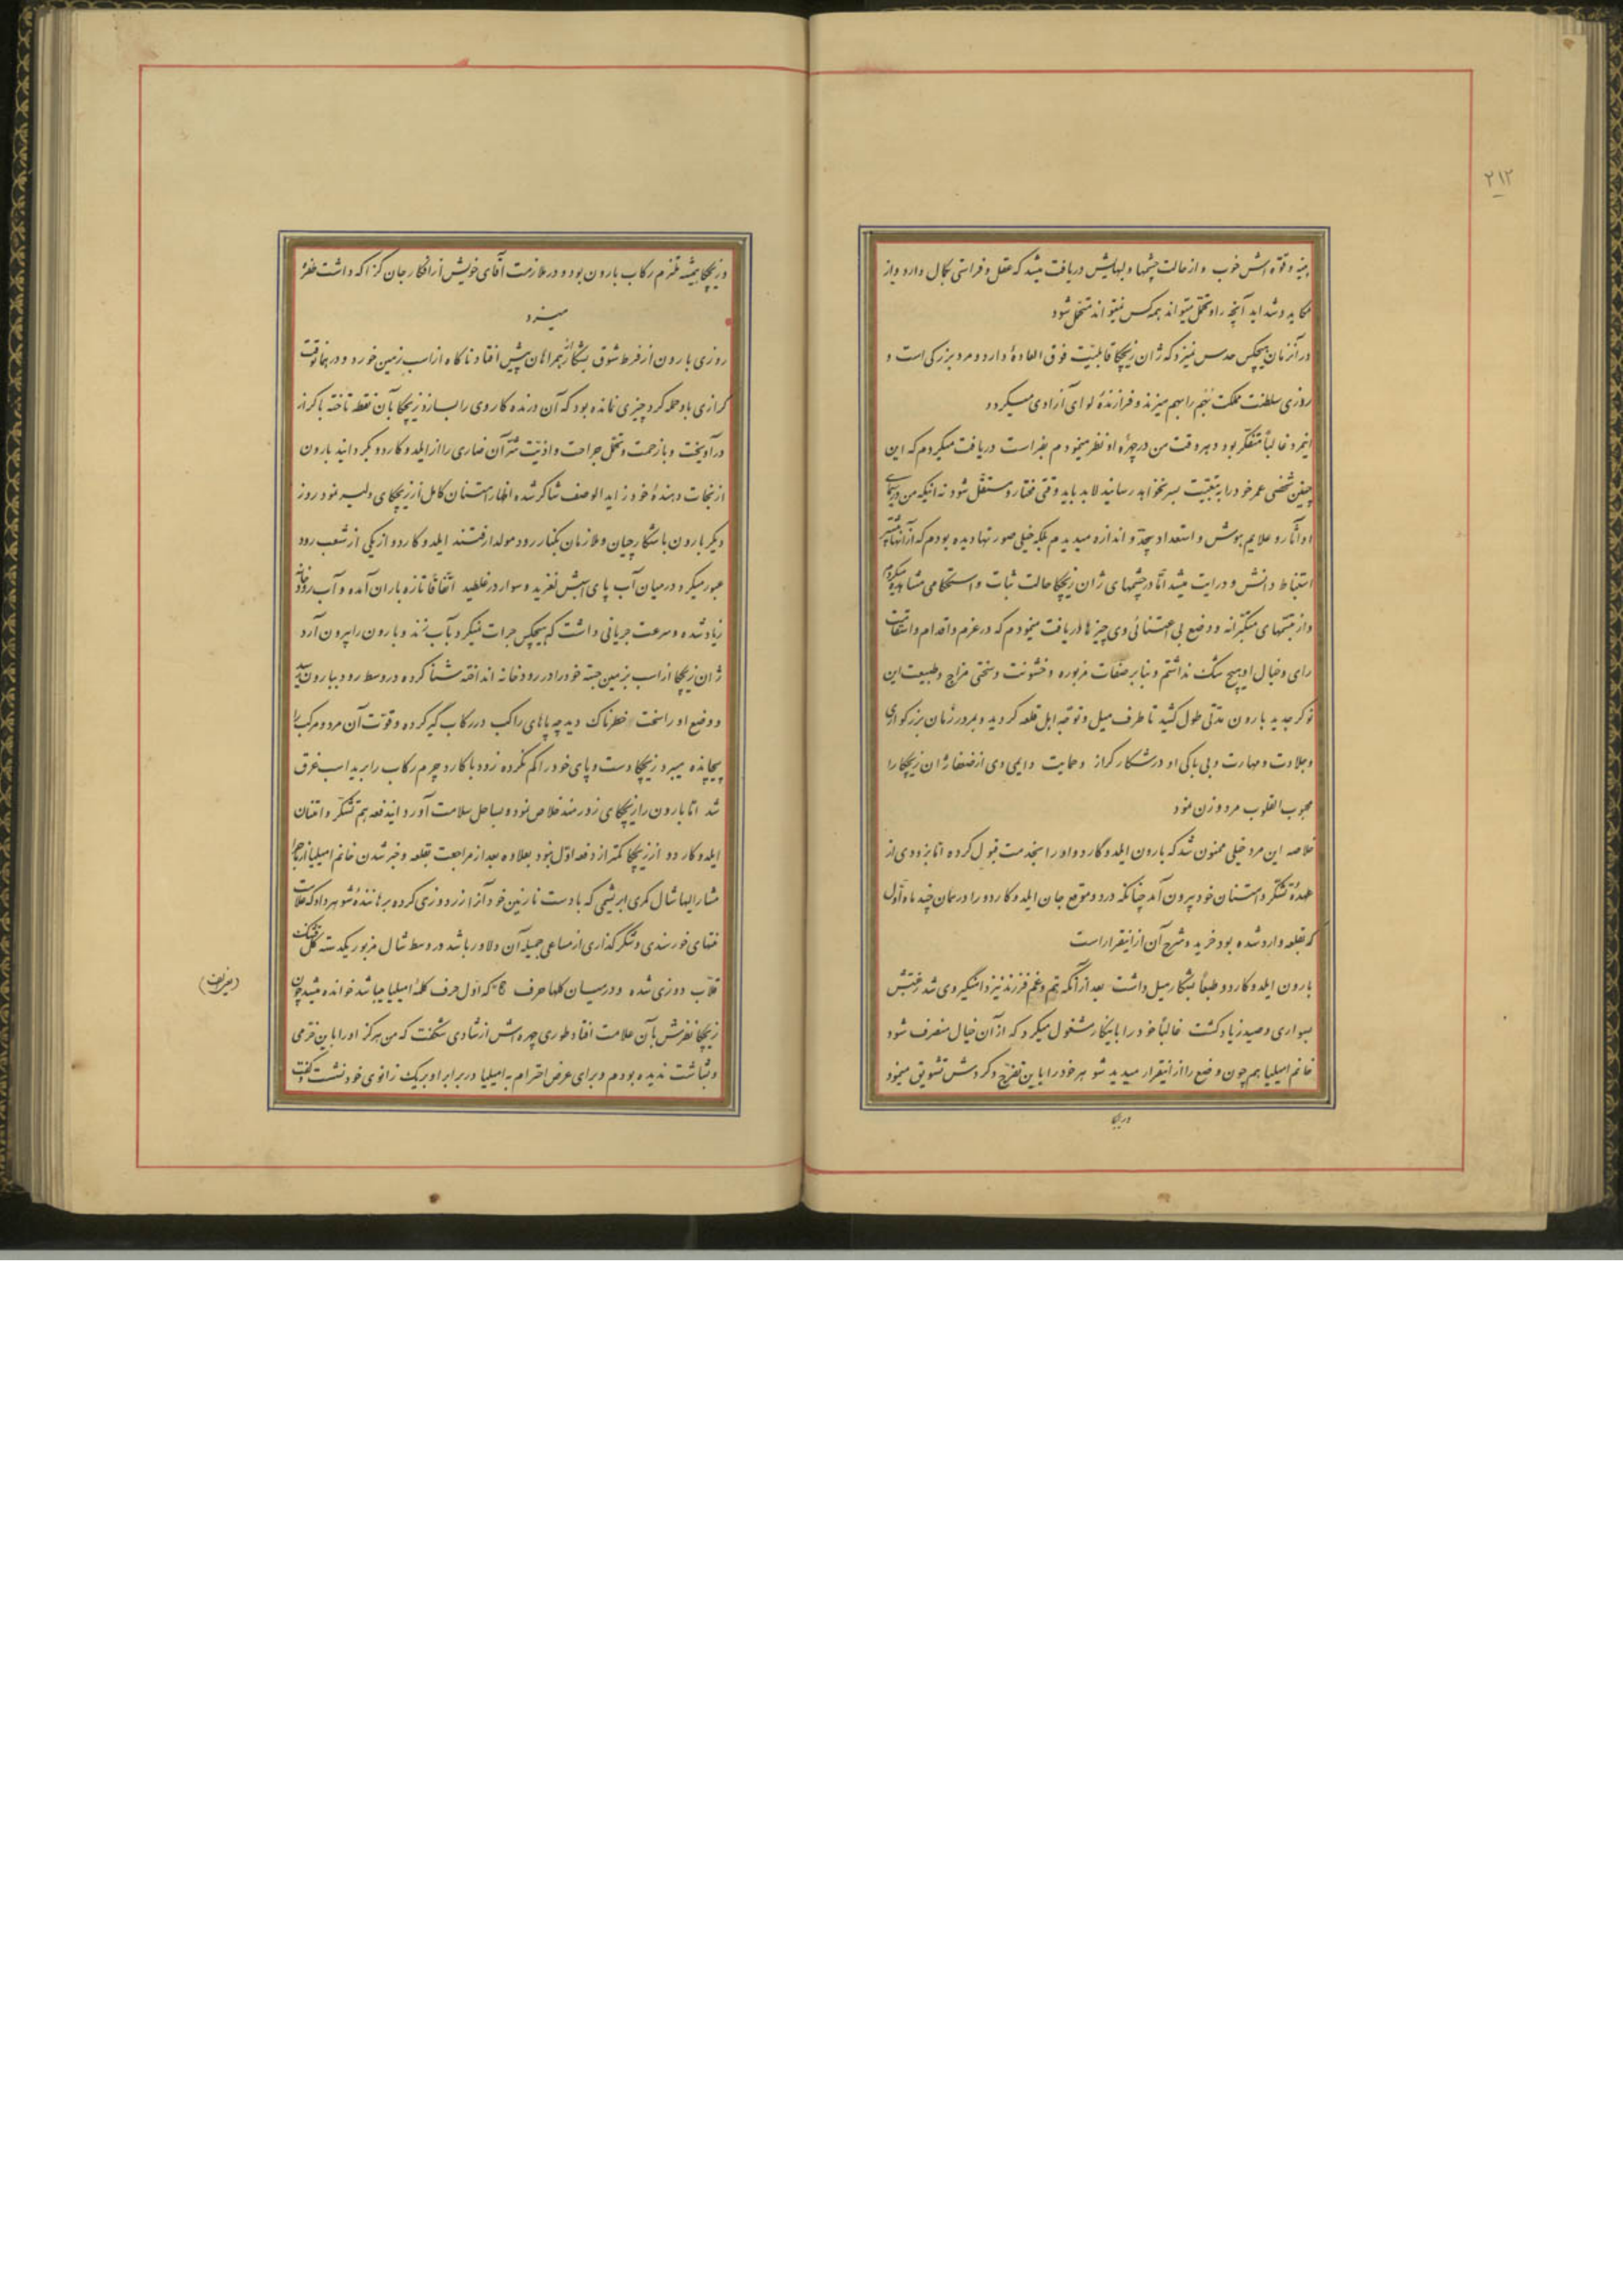 ۲۱۲
بنیه و قوّه اش خوب و از حالت چشمها و لبهایش دریافت میشد که عقل و فراستی بکمال دارد و از
مکاید و شداید آنچه را او تحمّل میتواند همه کس نمیتواند متحمّل شود
در آنزمان هیچکس حدس نمیزد که ژان زیچکا قابلیّت فوق العادهٔ دارد و مرد بزرگی است و
روزی سلطنت مملکت بهم را بهم میزند و فرازندهٔ لوای آزادی میگردد
اینمرد غالباً متفکّر بود و هر وقت من در چهرهٔ او نظر مینمودم بفراست دریافت میکردم که این
چنین شخصی عمر خود را به تبعیّت بسر نخواهد رسانید لابد باید وقتی مختار و مستقلّ شود نه اینکه من در سیمای
او آثار و علایم هوش و استعداد بیحدّ و اندازه میدیدم بلکه خیلی صورتها دیده بودم که از آنها بیشتر
استنباط دانش و درایت میشد امّا در چشمهای ژان زیچکا حالت ثبات و استحکامی مشاهده میکردم
و از تبسّمهای متکبّرانه و وضع بی اعتنائی وی چیزها دریافت مینمودم که در عزم و اقدام و استقامت
رای و خیال او هیچ شک نداشتم و بنا بر صفات مزبوره و خشونت و سختی مزاج و طبیعت این
نوکر جدید بارون مدّتی طول کشید تا طرف میل و توجّه اهل قلعه گردید و بمرور زمان بزرگواری
و جلادت و مهارت و بی باکی او در شکار گراز و حمایت دایمی وی از ضعفا ژان زیچکا را
محبوب القلوب مرد و زن نمود
خلاصه این مرد خیلی ممنون شد که بارون ایلدوگاردو او را بخدمت قبول کرده امّا بزودی از
عهدهٔ تشکّر و امتنان خود بیرون آمد چنانکه در دو موقع جان ایلدوکاردو را در همان چند ماه اوّل
که بقلعه وارد شده بود خرید و شرح آن ازاینقرار است
بارون ایلدوکاردو طبعاً بشکار میل داشت بعد از آنکه همّ و غم فرزند نیز دامنگیر وی شد رغبتش
بسواری و صید زیاد گشت غالباً خود را باینکار مشغول میکرد که از آن خیال منصرف شود
خانم امیلیا هم چون وضع را از اینقرار میدید شوهر خود را باین تفرّج و گردش تشویق مینمود
و زیچکا
و زیچکا همیشه ملتزم رکاب بارون بود و در ملازمت آقای خویش از افکار جان گزا که داشت طفره
میزد
روزی بارون از فرط شوق بشکار از همراهان پیش افتاد ناگاه از اسب زمین خورد و در همانوقت
گرازی باو حمله کرد چیزی نمانده بود که آن درنده کار وی را بسازد زیچکا بآن نقطه تاخته با گراز
در آویخت و با زحمت و تحمّل جراحت و اذیّت شرّ آن ضاری را از ایلدوکاردو بگردانید بارون
از نجات دهندهٔ خود زاید الوصف شاکر شده اظهار امتنان کامل از زیچکای دلیر نمود روز
دیگر بارون با شکارچیان و ملازمان بکنار رود مولدا رفتند ایلدوکاردو از یکی از شعب رود
عبور میکرد در میان آب پای اسبش لغزید و سوار در غلطید اتّفاقاً تازه باران آمده و آب رودخانه
زیاد شده و سرعت جریانی داشت که هیچکس جرات نمیکرد بآب زند و بارون را بیرون آرد
ژان زیچکا از اسب بزمین جسته خود را در رودخانه انداخته شنا کرده در وسط رود ببارون رسید
و وضع او را سخت خطرناک دید چه پاهای راکب در رکاب گیر کرده و قوّت آن مرد و مرکب را
پیچانده میبرد زیچکا دست و پای خود را گم نکرده زود با کارد چرم رکاب را برید اسب غرق
شد امّا بارون را زیچکای زورمند خلاص نمود و بساحل سلامت آورد ایندفعه هم تشکّر و امتنان
ایلدوکاردو از زیچکا کمتر از دفعه اوّل نبود بعلاوه بعد از مراجعت بقلعه و خبر شدن خانم امیلیا از ماجرا
مشار الیها شال کمری ابریشمی که با دست نازنین خود آنرا زردوزی کرده برهانندهٔ شوهر داد که علامت
منتهای خورسندی و شکرگذاری از مساعی جمیلهٔ آن دلاور باشد در وسط شال مزبور یکدسته گل
قلّاب دوزی شده و در میان گلها حرف که اوّل حرف کلمهٔ امیلیا میباشد خوانده میشد چون
زیچکا نظرش بآن علامت افتاد طوری چهره اش از شادی شکفت که من هرگز او را باین خرّمی
و بشاشت ندیده بودم و برای عرض احترام به امیلیا در برابر او بر یک زانوی خود نشست و گفت